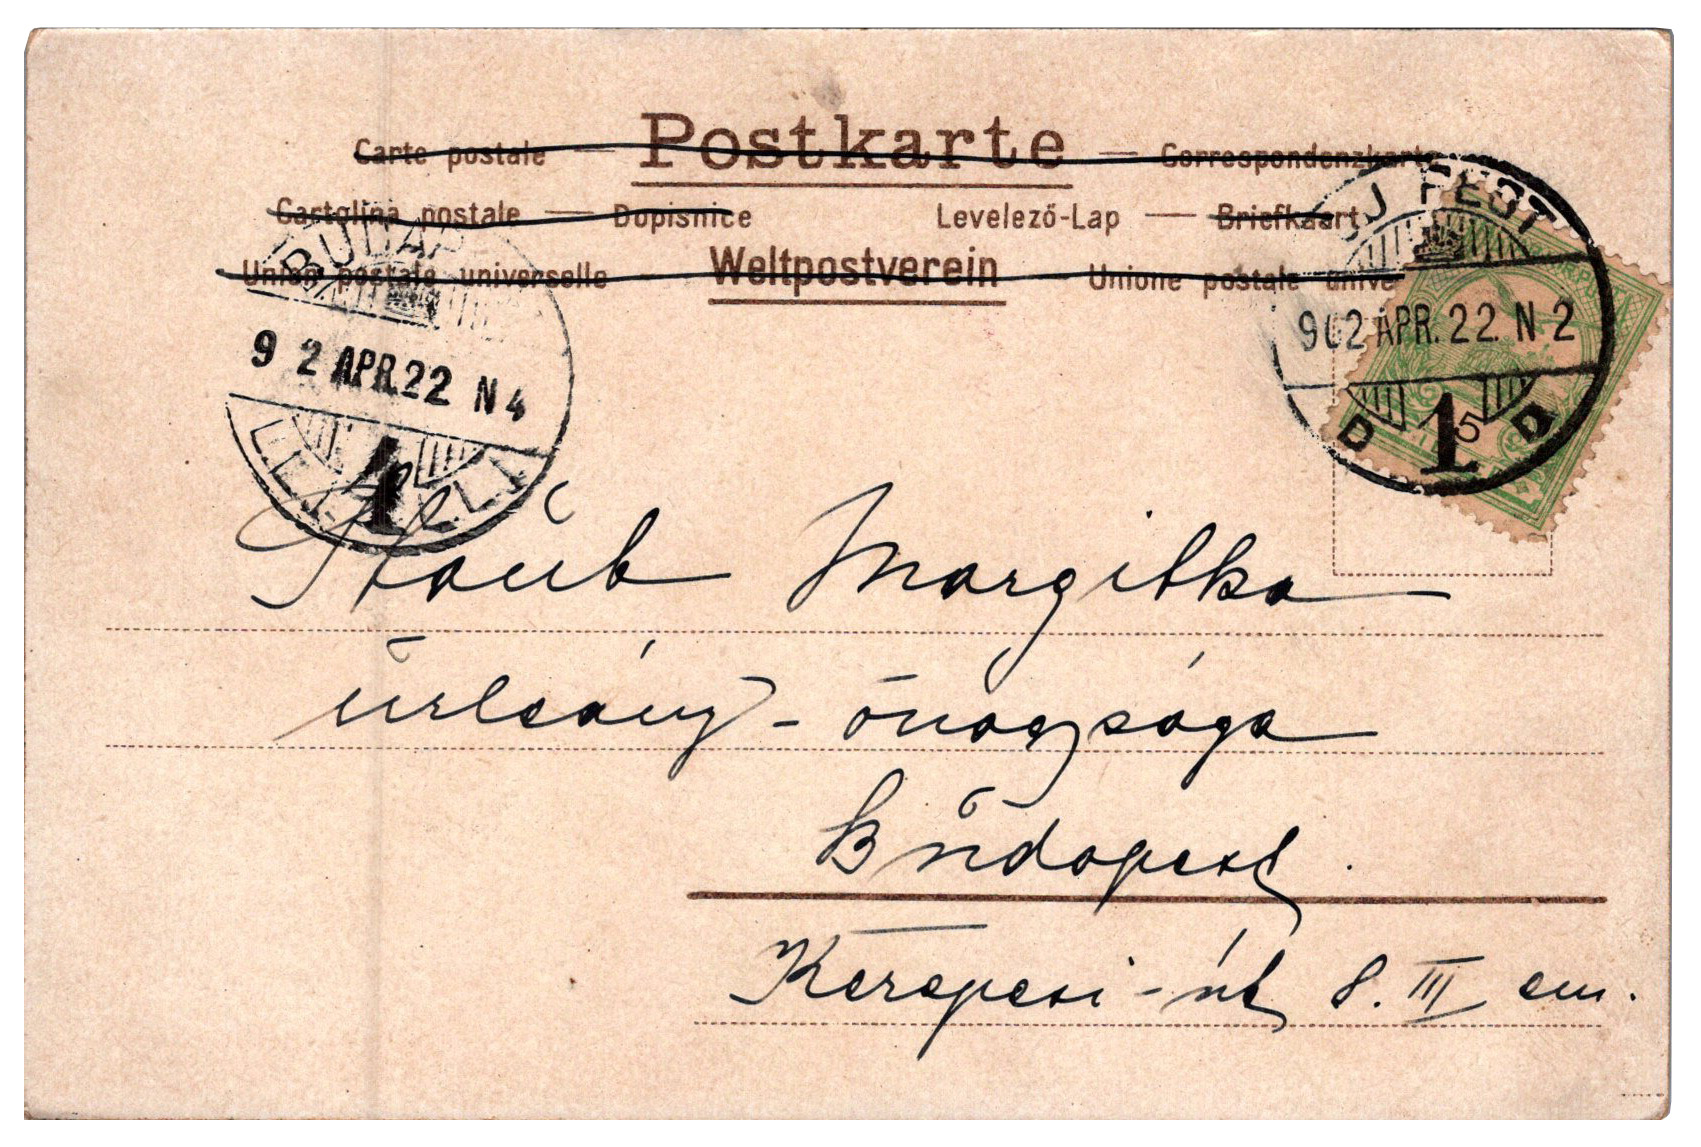 Carte postale — Postkarte — Correspondenzkarte
Cartolina postale — Dopisnice Levelező-Lap — Briefkaart
Union postale universelle - Weltpostverein - Unione postale
BUDAP
9 2 APR. 22 N 4
1
UJ PEST
902 APR. 22. N 2
D 1 D
5
Staub Margitka
úrleány - őnagysága
Budapest.
Kerepesi-út 8. III em.